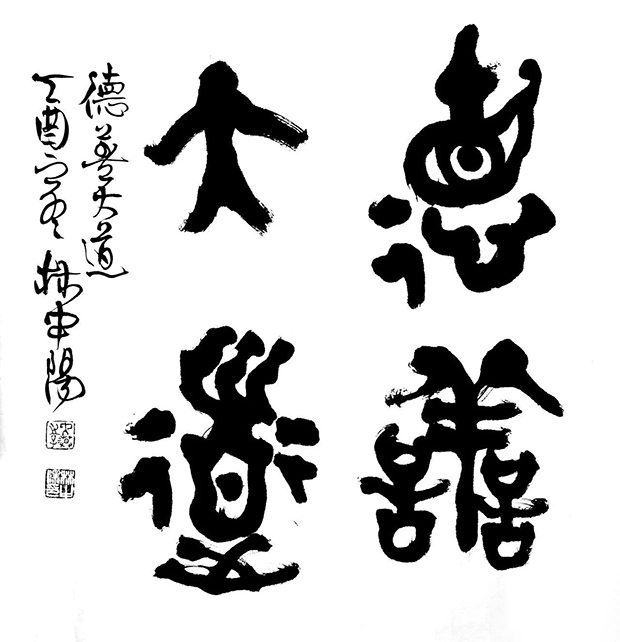 德善
大道
德善大道
丁酉之冬 林中陽